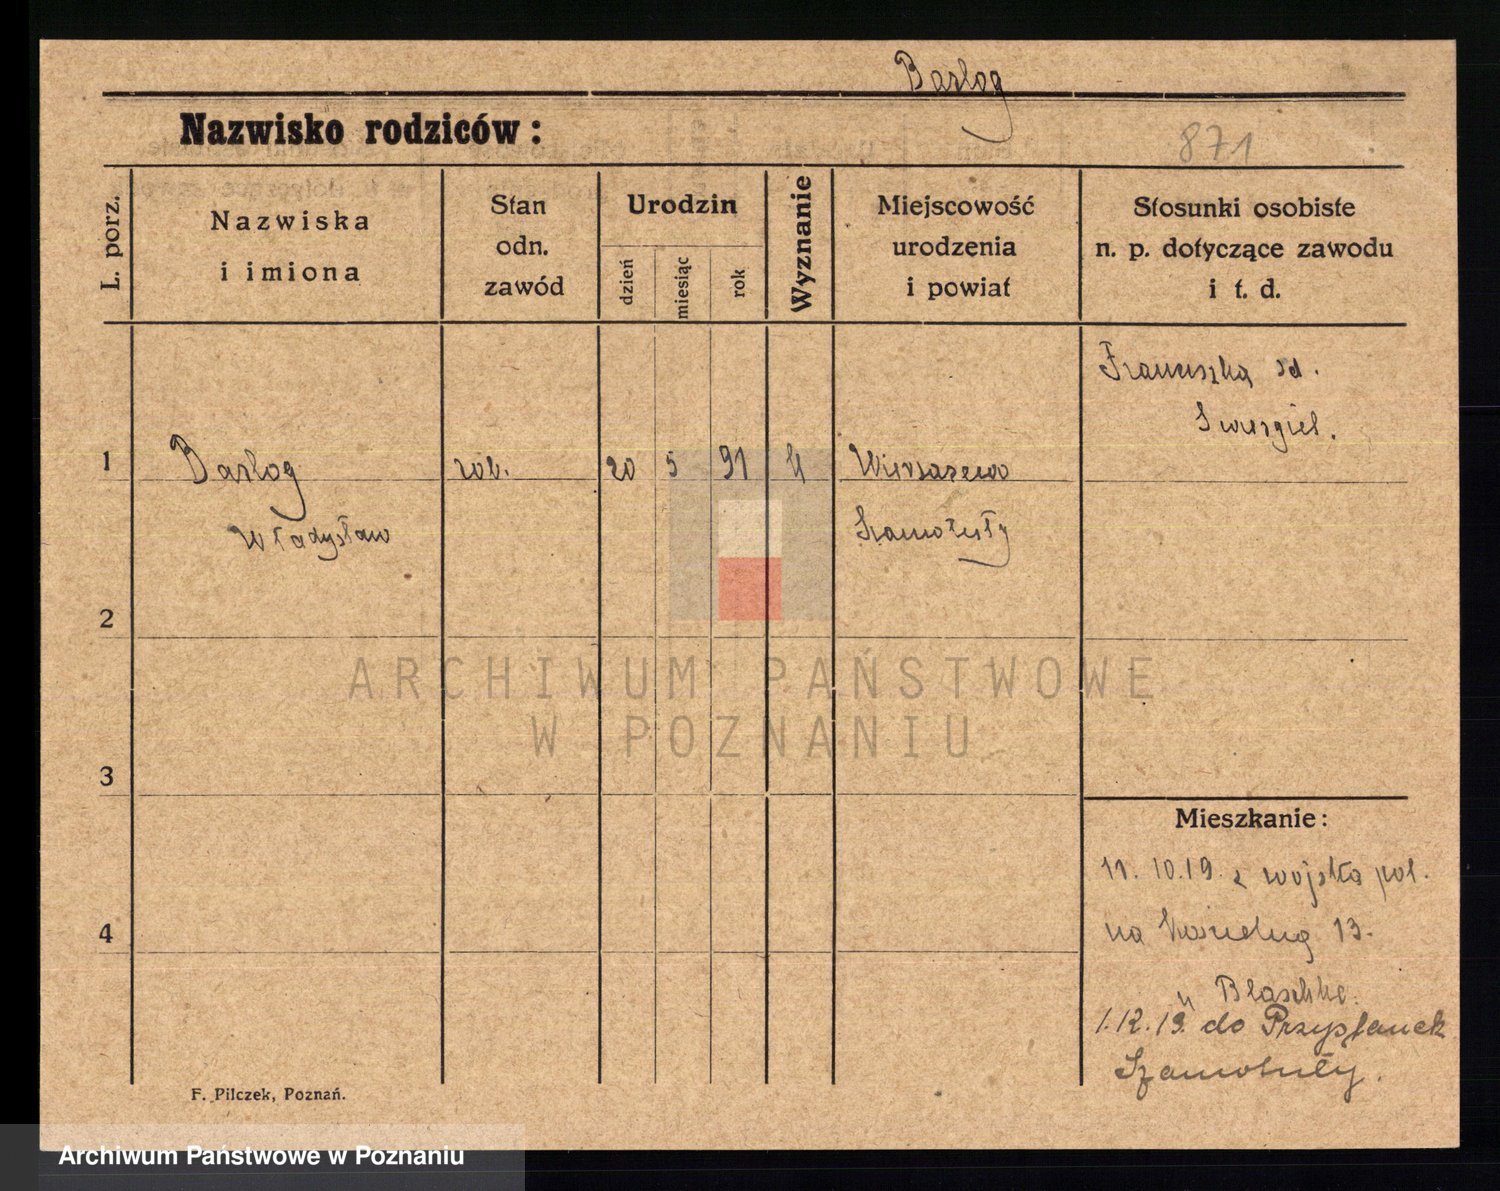 Barłog
Nazwisko rodziców:
871
L. porz.
Nazwiska
i imiona
Stan
odn.
zawód
Urodzin
dzień
miesiąc
rok
Wyznanie
Miejscowość
urodzenia
i powiat
Stosunki osobiste
n. p. dotyczące zawodu
i t. d.
Franciszka
1 Barłog rob. 20 5 91 Wierzazewo
Władysław Szamotuły
2
3
4
Mieszkanie:
11. 10. 19. z wojska pol.
na 13.
Blaschke.
1. 12. 19. do Przystanek
Szamotuły.
F. Pilczek, Poznań.
ARCHIWUM PAŃSTWOWE
W POZNANIU
Archiwum Państwowe w Poznaniu